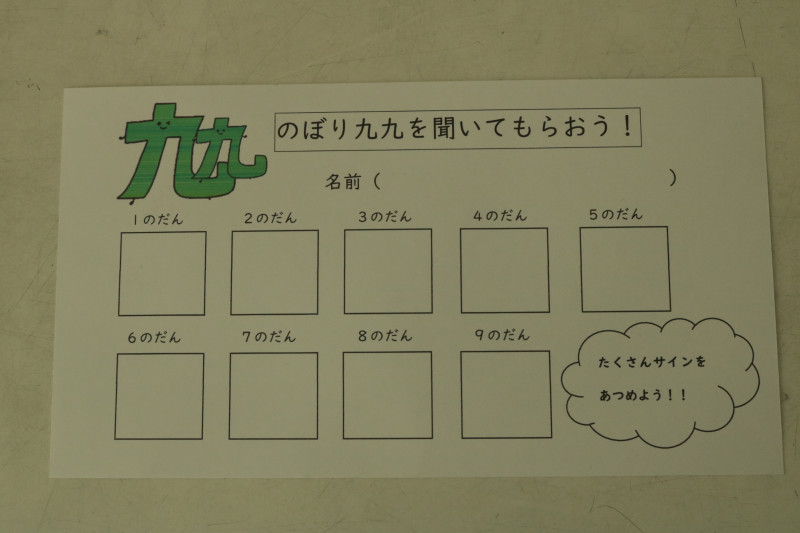 九九
のぼり九九を聞いてもらおう！
名前（　　　　　　　　　　）
1のだん 2のだん 3のだん 4のだん 5のだん
6のだん 7のだん 8のだん 9のだん
たくさんサインを
あつめよう！！